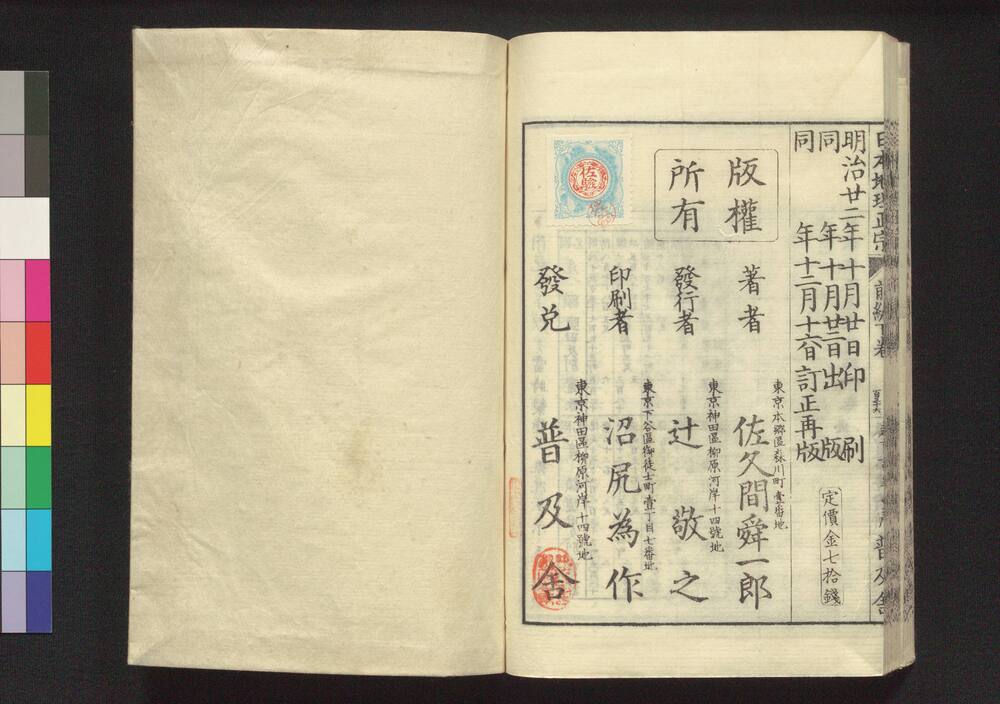 日本地理正宗 前編下卷 普及舍
明治廿二年十月廿日印刷
同年十月廿二日出版
同年十二月十六日訂正再版
定價金七拾錢
版權
所有
東京本郷區森川町壹番地
著者 佐久間舜一郎
東京神田區柳原河岸十四號地
發行者 辻敬之
東京下谷區御徒士町壹丁目七番地
印刷者 沼尻為作
東京神田區柳原河岸十四號地
發兌 普及舍
佐驗